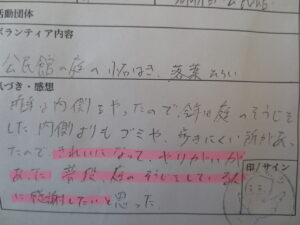 活動団体
ボランティア内容
公民館の庭の小石はき、落葉ひろい
気づき・感想
内側をやったので、今回は庭のそうじを
した。内側よりもゴミや、歩きにくい所があっ
たので、きれいになって、やりがいが
あった。普段、庭のそうじをしている人
に感謝したいと思った。
印/サイン